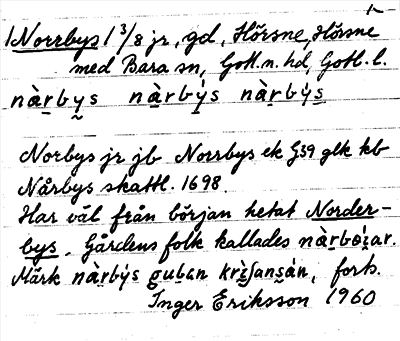 1 Norrbys 1 3/8 jr, gd, Hörsne, Hörsne
med Bara sn, Gotl. n. hd, Gotl. l.
nàṟbys nàṟbýs nàṟbýs
Norbys jr jb Norrbys ek G59 glk kb
Nårbys skattl. 1698.
Har väl från början hetat Norder-
bys. Gårdens folk kallades
Märk nàrbýs guban forts.
Inger Eriksson 1960